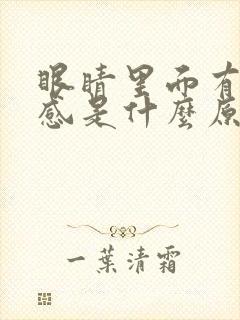 眼睛里面有
感是什麼原
一葉清霜